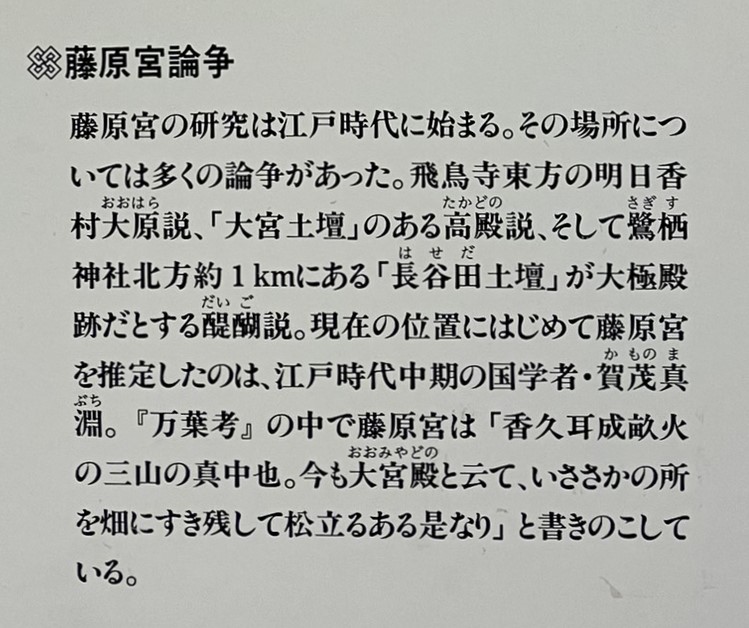 藤原宮論争
藤原宮の研究は江戸時代に始まる。その場所につ
いては多くの論争があった。飛鳥寺東方の明日香
おおはら たかどの さぎす
村大原説、「大宮土壇」のある高殿説、そして鷺栖
はせだ
神社北方約1kmにある「長谷田土壇」が大極殿
だいご
跡だとする醍醐説。現在の位置にはじめて藤原宮
を推定したのは、江戸時代中期の国学者・賀茂真
かものま
ぶち
淵。『万葉考』の中で藤原宮は「香久耳成畝火
おおみやどの
の三山の真中也。今も大宮殿と云て、いささかの所
を畑にすき残して松立るある是なり」と書きのこして
いる。